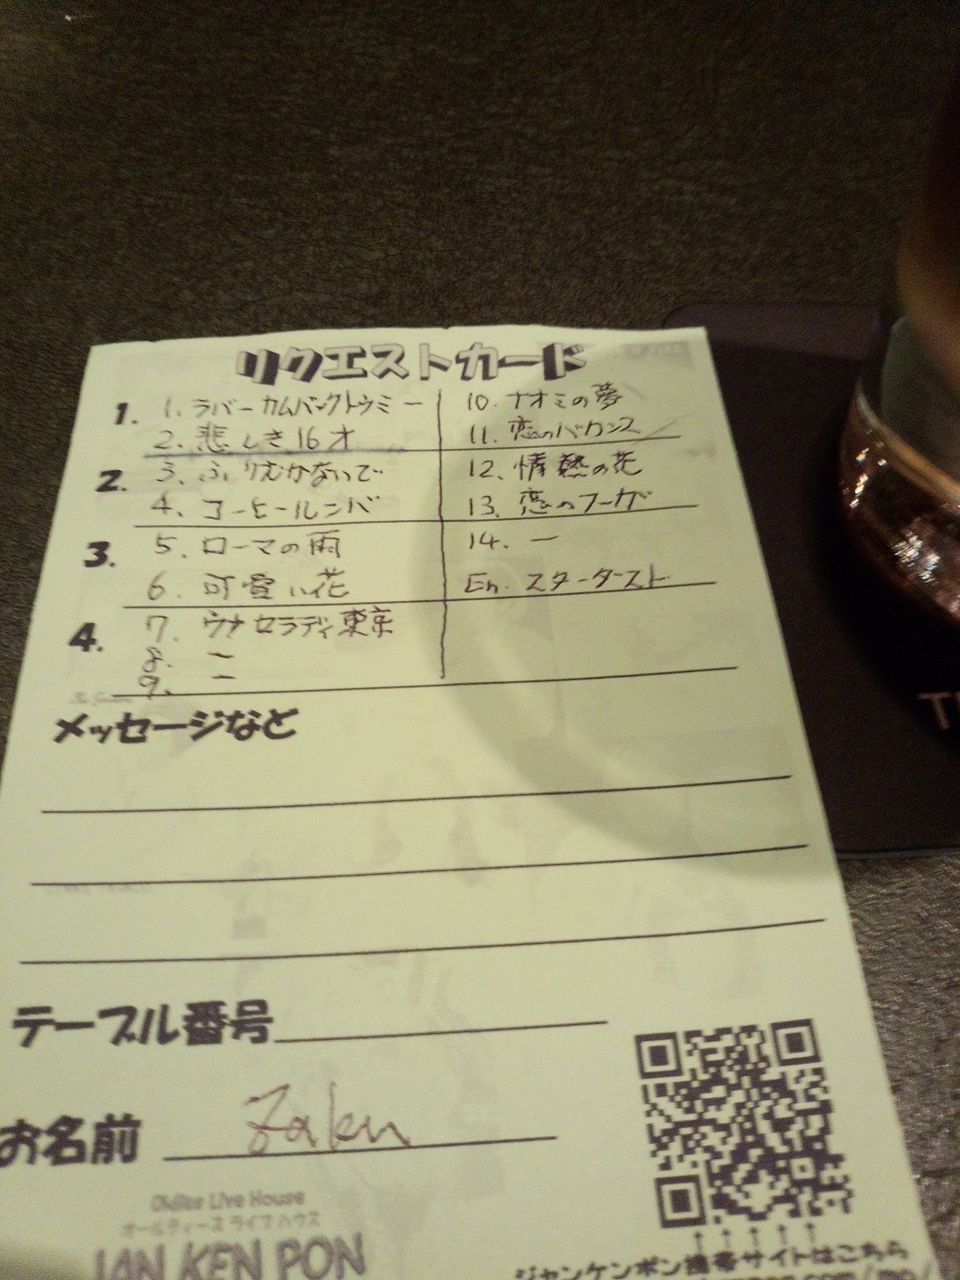 リクエストカード
1. 1. ラバーカムバックトゥミー
2. 悲しき16才
2. 3. ふりむかないで
4. コーヒールンバ
3. 5. ローマの雨
6. 可愛い花
4. 7. ウナセラディ東京
8. ー
9. ー
10. ナオミの夢
11. 恋のバカンス
12. 情熱の花
13. 恋のフーガ
14. ー
En. スターダスト
メッセージなど
テーブル番号
お名前 Zaku
Oldies Live House
オールディーズ ライブ ハウス
JAN KEN PON
ジャンケンポン携帯サイトはこちら